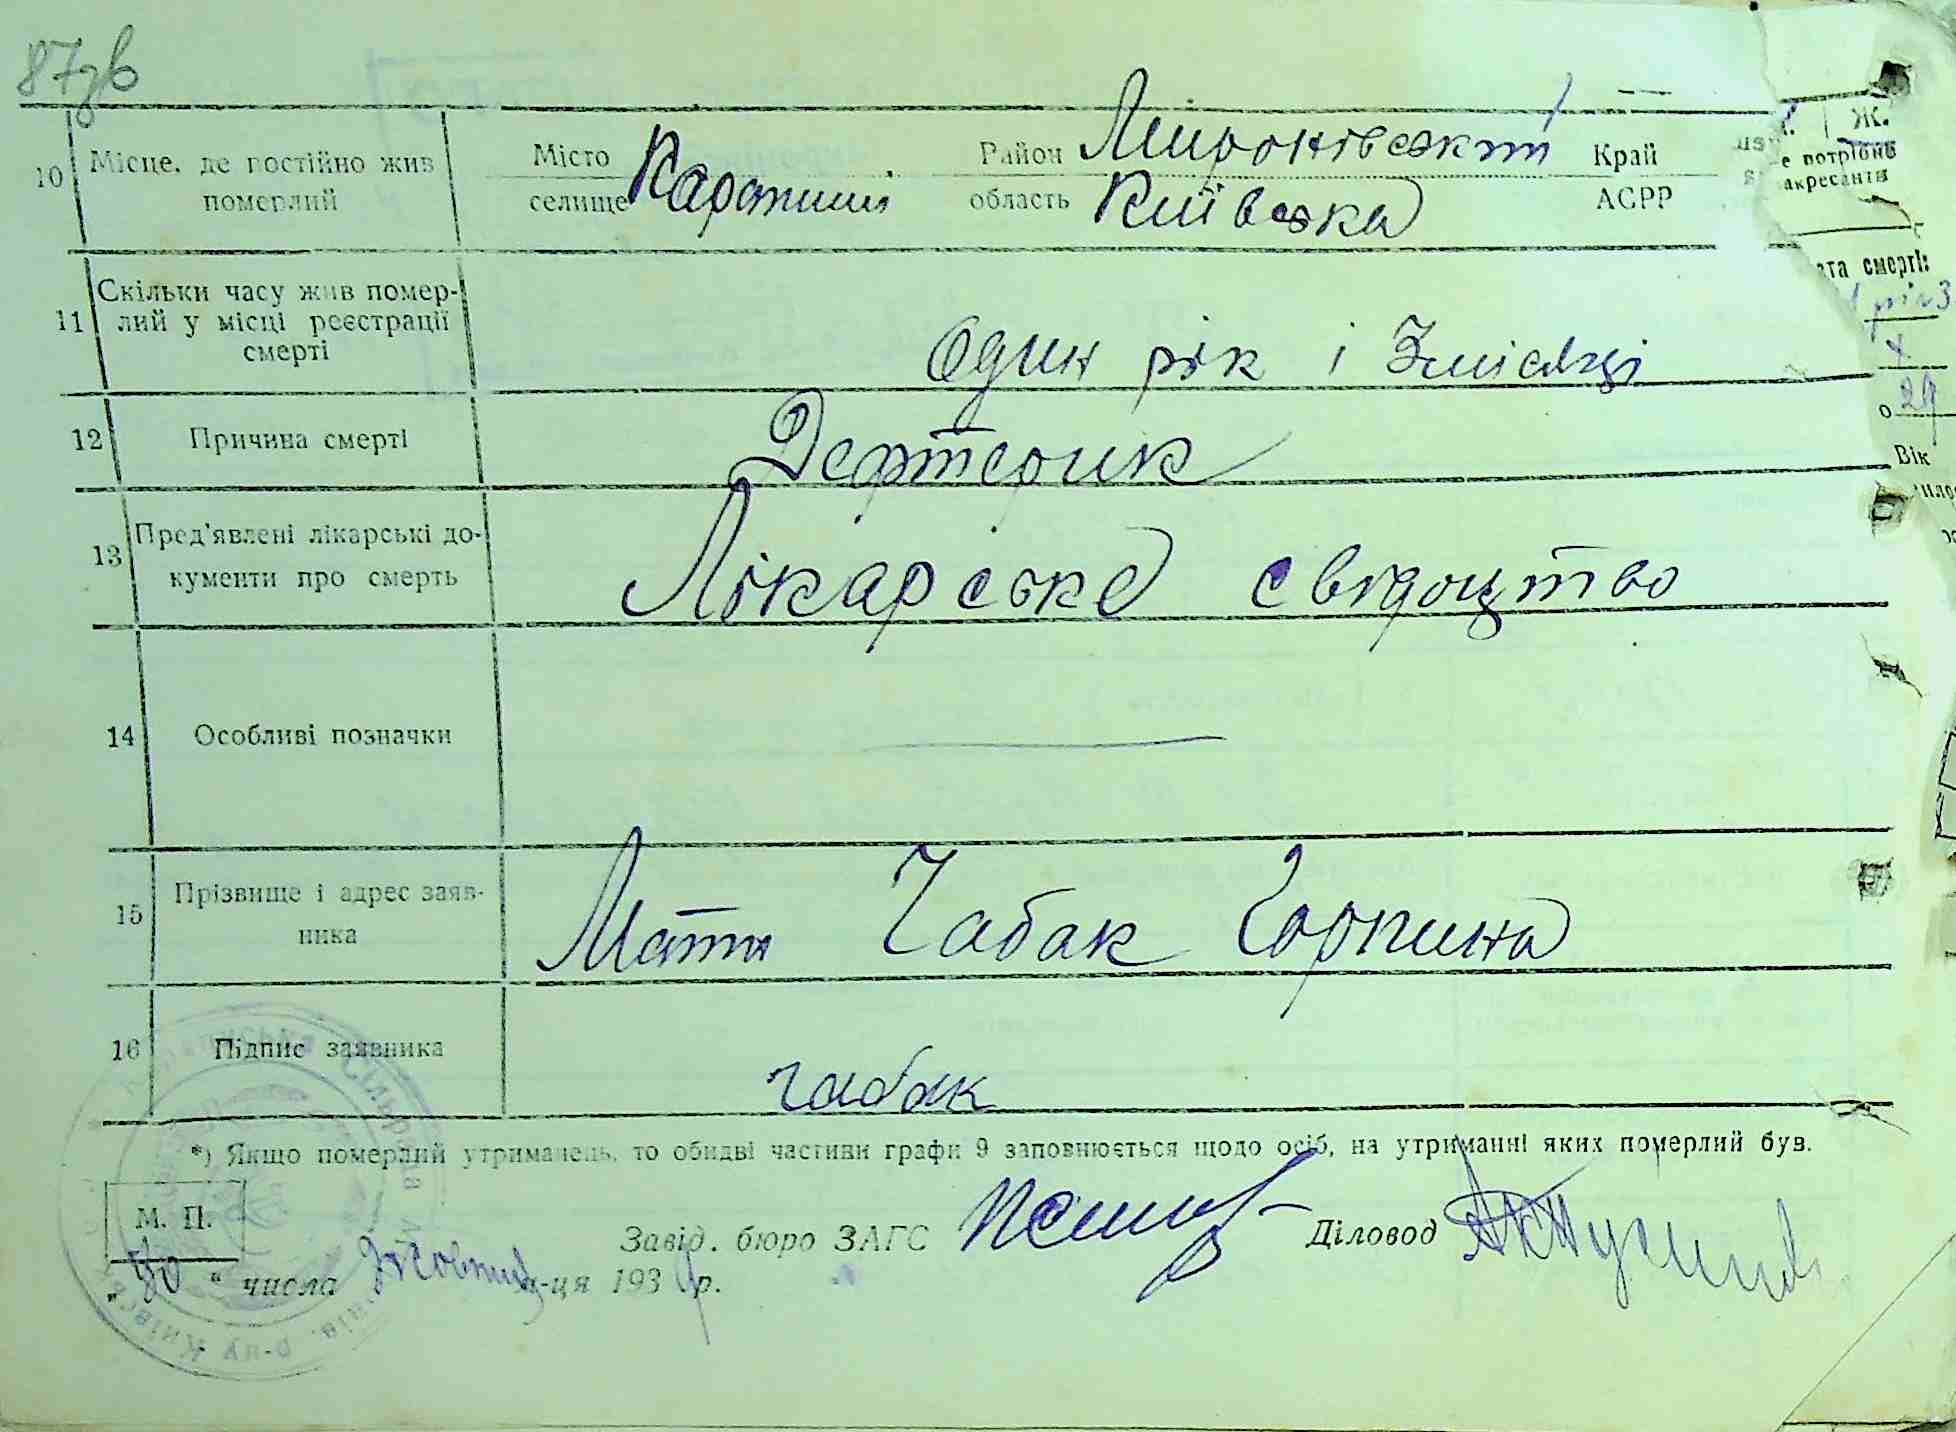 87зв
10 Місце, де постійно жив померлий Місто селище Карапиші Район Миронівський область Київська Край АСРР
11 Скільки часу жив помер-
лий у місці реєстрації
смерті
Один рік і 3 місяці
12 Причина смерті Дефтерик
13 Пред'явлені лікарські до-
кументи про смерть
Лікарське свідоцтво
14 Особливі позначки —
15 Прізвище і адрес заяв-
ника
Мати Чабак Горпина
16 Підпис заявника чабак
*) Якщо померлий утриманець, то обидві частини графи 9 заповнюється щодо осіб, на утриманні яких померлий був.
М. П.
Завід. бюро ЗАГС Діловод
„30“ числа Жовтня м-ця 1939 р.
Ж.
е потрібне
закреслити
ата смерті:
29
Вік